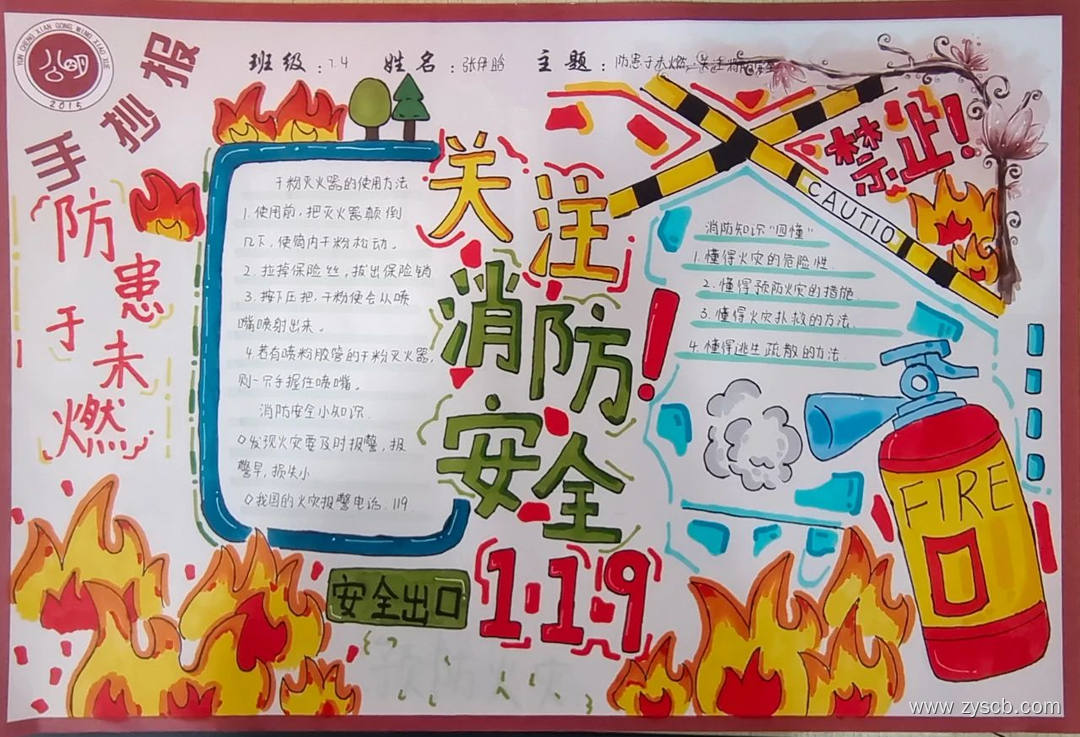 YUN CHENG XIAN GONG MING XIAO XUE
2015
手抄报
班级：7.4 姓名：张伊晗 主题：防患于未燃
防患于未燃
干粉灭火器的使用方法
1.使用前,把灭火器颠倒
几下,使筒内干粉松动。
2.拉掉保险丝,拔出保险销
3.按下压把,干粉便会从喷
嘴喷射出来。
4.若有喷粉胶管的干粉灭火器,
则一只手握住喷嘴。
消防安全小知识
◇发现火灾要及时报警,报
警早,损失小
◇我国的火灾报警电话.119
关注
消防
安全
!
119
安全出口
禁止!
CAUTIO
消防知识"四懂"
1.懂得火灾的危险性.
2.懂得预防火灾的措施.
3.懂得火灾扑救的方法
4.懂得逃生疏散的方法
FIRE
预防火灾
www.zyscb.com